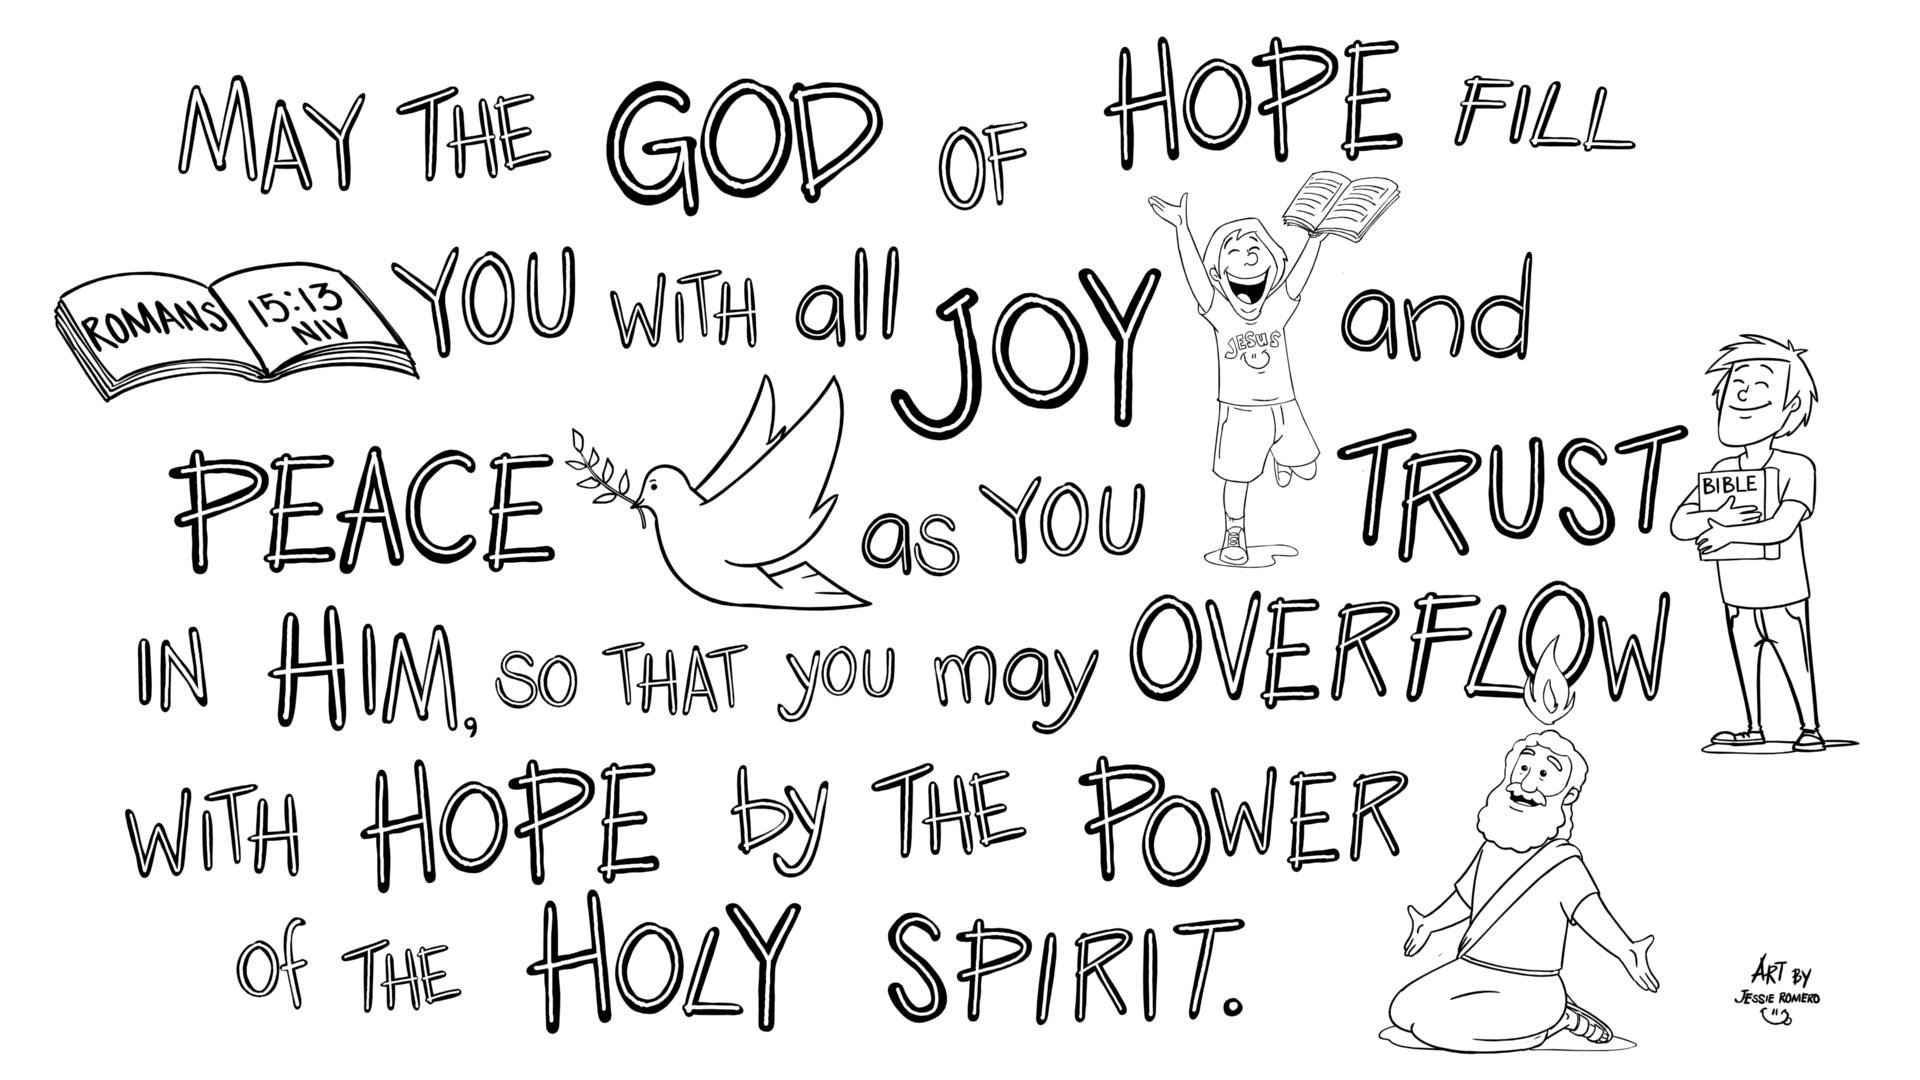 MAY THE GOD OF HOPE FILL
ROMANS 15:13
NIV
YOU WITH all JOY and
JESUS
PEACE as YOU TRUST
BIBLE
IN HIM, SO THAT you may OVERFLOW
WITH HOPE by THE POWER
of THE HOLY SPIRIT.
ART BY
JESSIE ROMERO